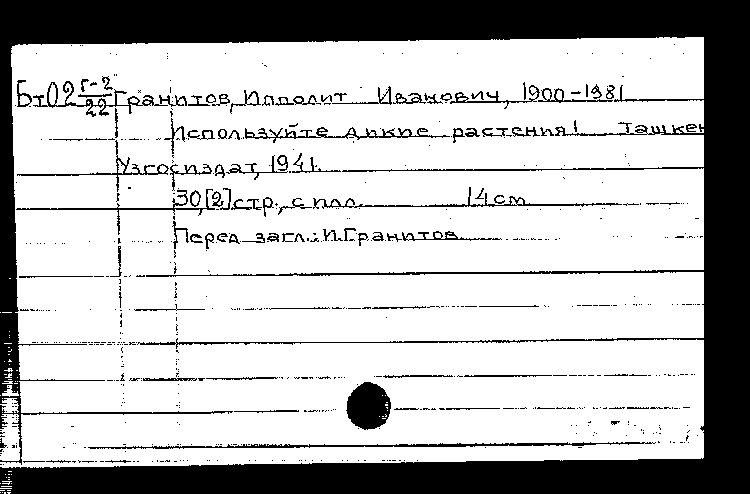 Бт02 Г-2/22 Гранитов, Ипполит Иванович, 1900-1981
Используйте дикие растения! Ташкен
Узгосиздат, 1941.
30,[2] стр., с илл. 14 см
Перед загл.: И. Гранитов